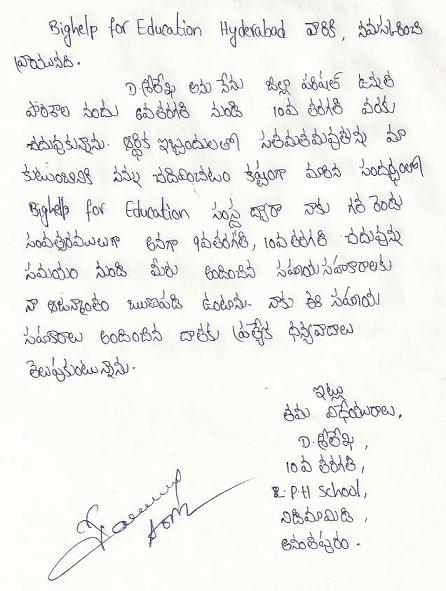 Bighelp for Education Hyderabad వారికి, నమస్కరించి
వ్రాయునది.
D.శిరీష అను నేను జిల్లా పరిషత్ ఉన్నత
పాఠశాల నందు 6వతరగతి నుండి 10వ తరగతి వరకు
చదువుకున్నాను. ఆర్థిక ఇబ్బందులతో సతమతమవుతున్న మా
కుటుంబానికి నన్ను చదివించటం కష్టంగా మారిన సందర్భంలో
Bighelp for Education సంస్థ ద్వారా నాకు గత రెండు
సంవత్సరములుగా అనగా 9వతరగతి, 10వతరగతి చదువున్న
సమయం నుండి మీరు అందించిన సహాయసహకారాలకు
నా ఆజన్మాంతం ఋణపడి ఉంటాను. నాకు ఈ సహాయ
సహకారాలు అందించిన దాతకు ప్రత్యేక ధన్యవాదాలు
తెలుపుకుంటున్నాను.
ఇట్లు
తమ విధేయురాలు,
D.శిరీష,
10వ తరగతి,
Z.P.H School,
నిడిమామిడి,
అనంతపురం.